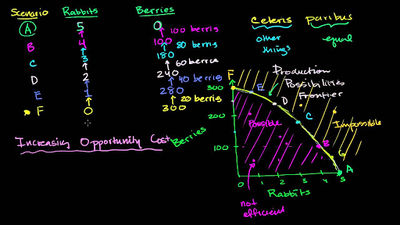 Scenario Rabbits Berries
A 5 0
100 berries
B 4 100
80 berries
C 3 180
60 berries
D 2 240
40 berries
E 1 280
20 berries
F 0 300
Increasing Opportunity Cost
Ceteris paribus
other things equal
Berries
F
300
200
100
0
1 2 3 4 5
Rabbits
E
D
C
B
G
A
Production
Possibilities
Frontier
Possible
Impossible
not
efficient